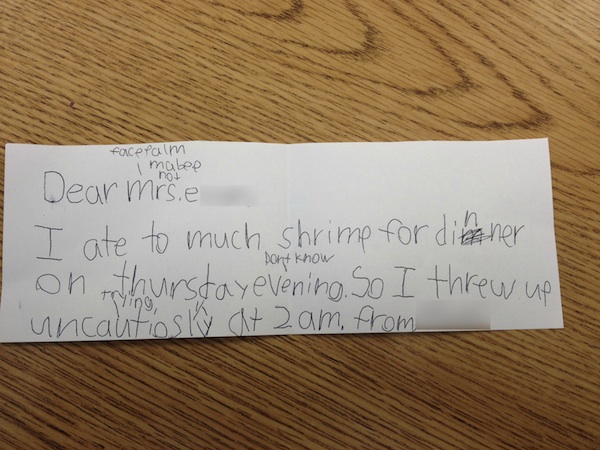 facepalm
I mabee
not
Dear mrs.e
I ate to much shrimp for dinner
Dont know
on thursday evening. So I threw up
trying,
uncautiosly at 2 am. from